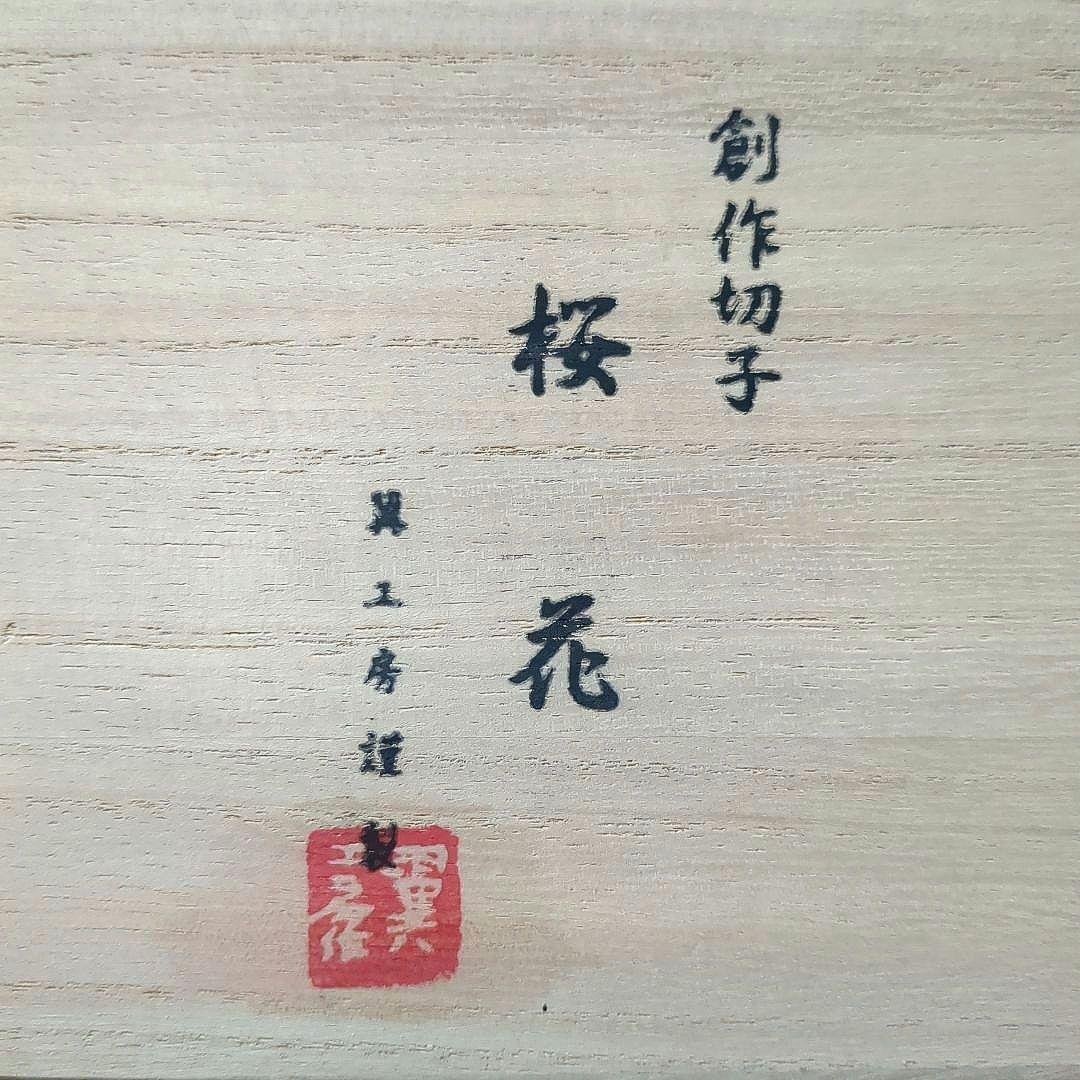 創作切子
桜花
翼工房謹製
翼工房作